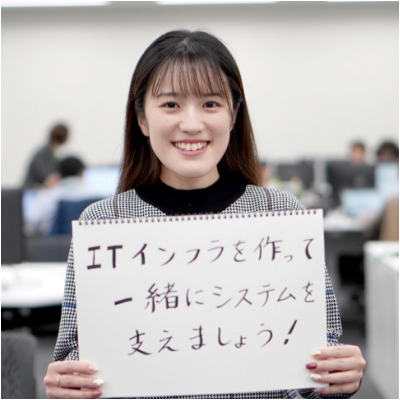 ITインフラを作って
一緒にシステムを
支えましょう!